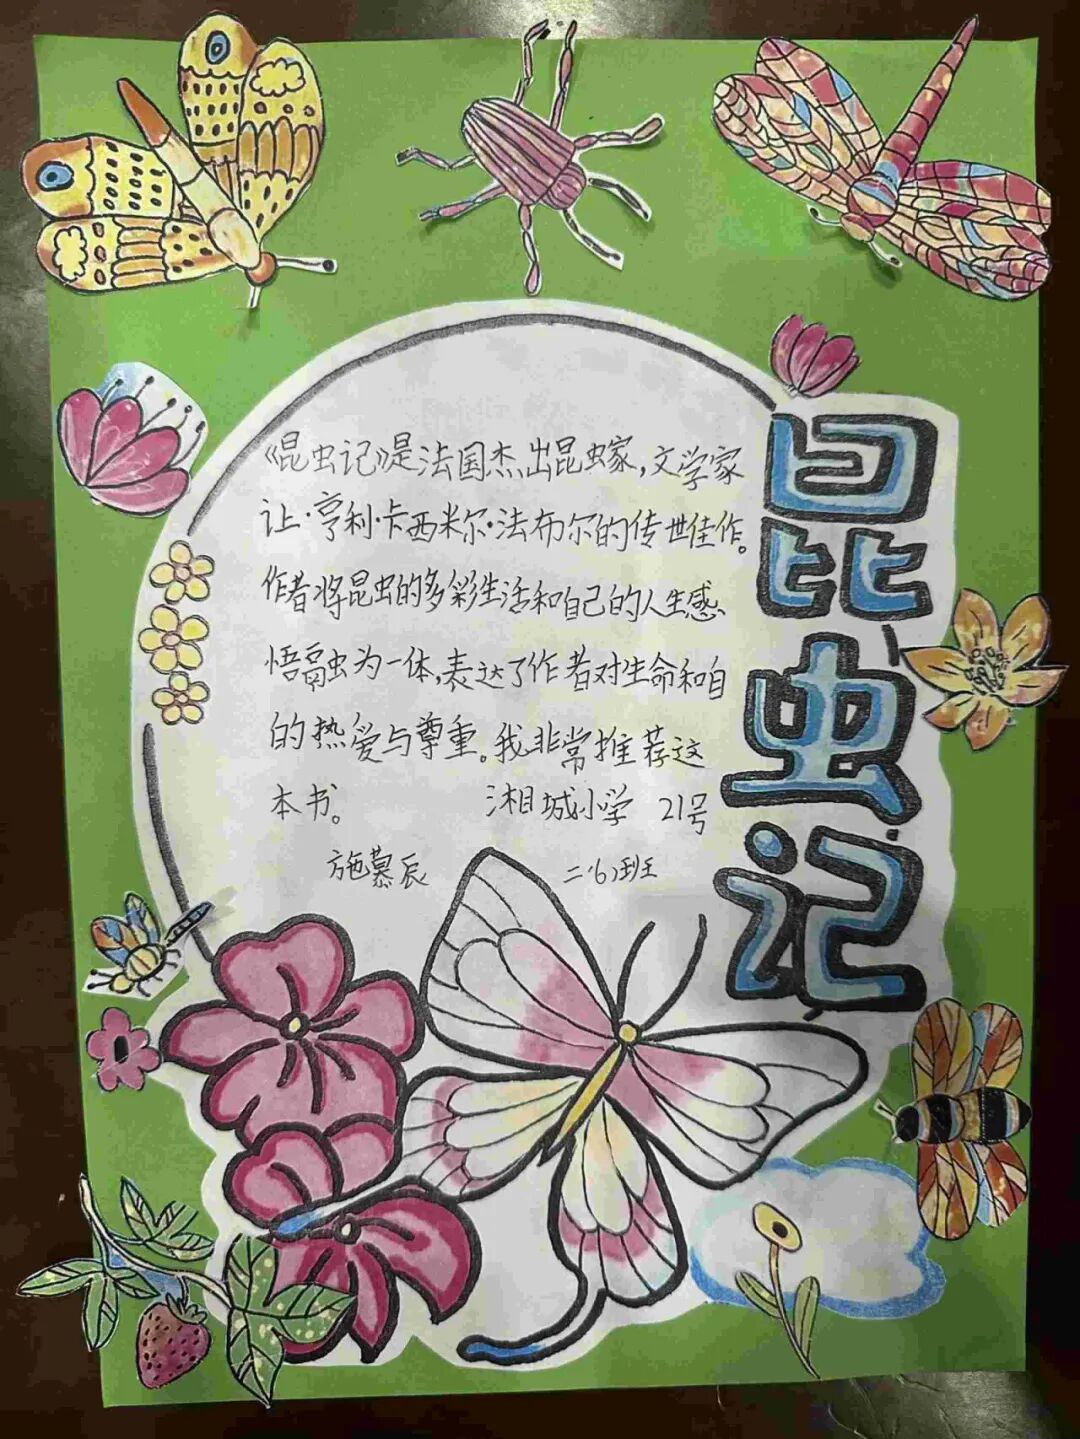 昆虫记
《昆虫记》是法国杰出昆虫家,文学家
让·亨利·卡西米尔·法布尔的传世佳作。
作者将昆虫的多彩生活和自己的人生感
悟融为一体,表达了作者对生命和自
的热爱与尊重。我非常推荐这
本书。 湘城小学 21号
施慕辰 二·(6)班